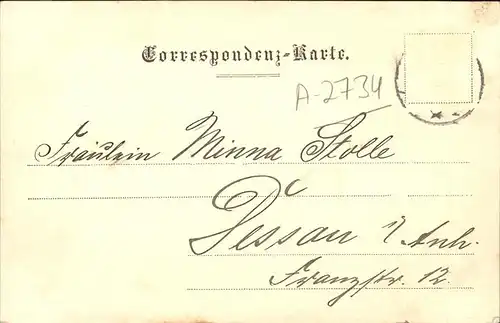 Correspondenz-Karte.
A-2734
Fräulein Minna Stolle
Dessau i/Anh.
Franzstr. 12.